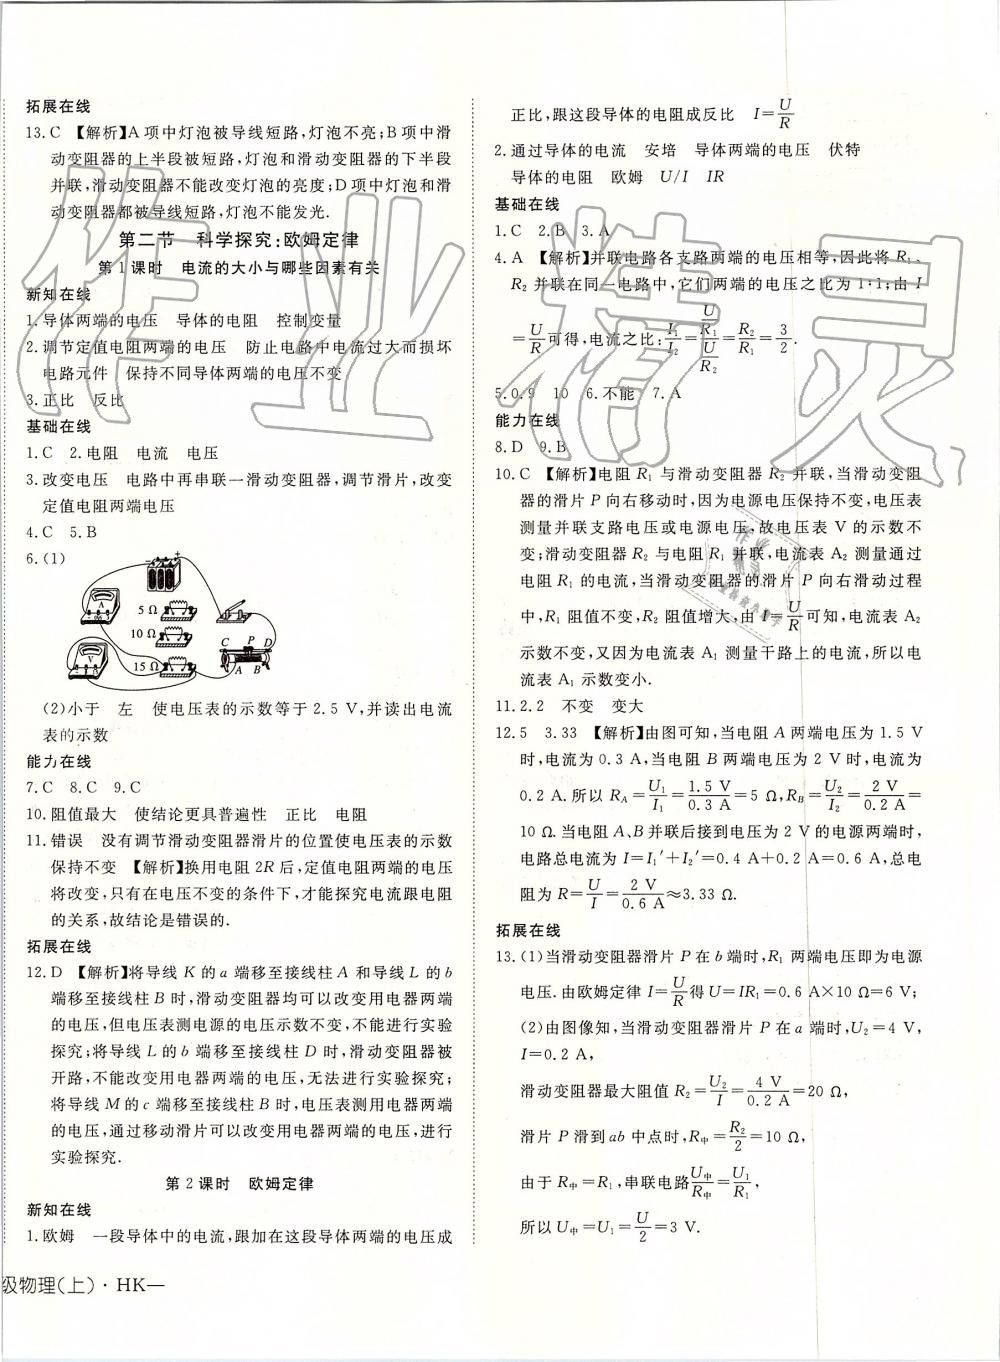 拓展在线
13.C 【解析】A 项中灯泡被导线短路,灯泡不亮;B 项中滑
动变阻器的上半段被短路,灯泡和滑动变阻器的下半段
并联,滑动变阻器不能改变灯泡的亮度;D 项中灯泡和滑
动变阻器都被导线短路,灯泡不能发光.
第二节 科学探究:欧姆定律
第 1 课时 电流的大小与哪些因素有关
新知在线
1.导体两端的电压 导体的电阻 控制变量
2.调节定值电阻两端的电压 防止电路中电流过大而损坏
电路元件 保持不同导体两端的电压不变
3.正比 反比
基础在线
1.C 2.电阻 电流 电压
3.改变电压 电路中再串联一滑动变阻器,调节滑片,改变
定值电阻两端电压
4.C 5.B
6.(1)
+
A
5 Ω
10 Ω
V
15 Ω
C P D
A B
(2)小于 左 使电压表的示数等于 2.5 V,并读出电流
表的示数
能力在线
7.C 8.C 9.C
10.阻值最大 使结论更具普遍性 正比 电阻
11.错误 没有调节滑动变阻器滑片的位置使电压表的示数
保持不变 【解析】换用电阻 2R 后,定值电阻两端的电压
将改变,只有在电压不变的条件下,才能探究电流跟电阻
的关系,故结论是错误的.
拓展在线
12.D 【解析】将导线 K 的 a 端移至接线柱 A 和导线 L 的 b
端移至接线柱 B 时,滑动变阻器均可以改变用电器两端
的电压,但电压表测电源的电压示数不变,不能进行实验
探究;将导线 L 的 b 端移至接线柱 D 时,滑动变阻器被
开路,不能改变用电器两端的电压,无法进行实验探究;
将导线 M 的 c 端移至接线柱 B 时,电压表测用电器两端
的电压,通过移动滑片可以改变用电器两端的电压,进行
实验探究.
第 2 课时 欧姆定律
新知在线
1.欧姆 一段导体中的电流,跟加在这段导体两端的电压成
正比,跟这段导体的电阻成反比 I=U/R
2.通过导体的电流 安培 导体两端的电压 伏特
导体的电阻 欧姆 U/I IR
基础在线
1.C 2.B 3.A
4.A 【解析】并联电路各支路两端的电压相等,因此将 R₁、
R₂ 并联在同一电路中,它们两端的电压之比为 1∶1;由 I
=U/R可得,电流之比:I₁/I₂=(U/R₁)/(U/R₂)=R₂/R₁=3/2.
5.0.9 10 6.不能 7.A
能力在线
8.D 9.B
10.C 【解析】电阻 R₁ 与滑动变阻器 R₂ 并联,当滑动变阻
器的滑片 P 向右移动时,因为电源电压保持不变,电压表
测量并联支路电压或电源电压,故电压表 V 的示数不
变;滑动变阻器 R₂ 与电阻 R₁ 并联,电流表 A₂ 测量通过
电阻 R₁ 的电流,当滑动变阻器的滑片 P 向右滑动过程
中,R₁ 阻值不变,R₂ 阻值增大,由 I=U/R可知,电流表 A₂
示数不变,又因为电流表 A₁ 测量干路上的电流,所以电
流表 A₁ 示数变小.
11.2.2 不变 变大
12.5 3.33 【解析】由图可知,当电阻 A 两端电压为 1.5 V
时,电流为 0.3 A,当电阻 B 两端电压为 2 V 时,电流为
0.2 A.所以 R_A=U₁/I₁=1.5 V/0.3 A=5 Ω,R_B=U₂/I₂=2 V/0.2 A=
10 Ω.当电阻 A、B 并联后接到电压为 2 V 的电源两端时,
电路总电流为 I=I₁′+I₂′=0.4 A+0.2 A=0.6 A,总电
阻为 R=U/I=2 V/0.6 A≈3.33 Ω.
拓展在线
13.(1)当滑动变阻器滑片 P 在 b 端时,R₁ 两端电压即为电源
电压.由欧姆定律 I=U/R得 U=IR₁=0.6 A×10 Ω=6 V;
(2)由图像知,当滑动变阻器滑片 P 在 a 端时,U₂=4 V,
I=0.2 A,
滑动变阻器最大阻值 R₂=U₂/I=4 V/0.2 A=20 Ω,
滑片 P 滑到 ab 中点时,R中=R₂/2=10 Ω,
由于 R中=R₁,串联电路U中/R中=U₁/R₁,
所以 U中=U₁=U/2=3 V.
级物理(上)·HK—
作业精灵